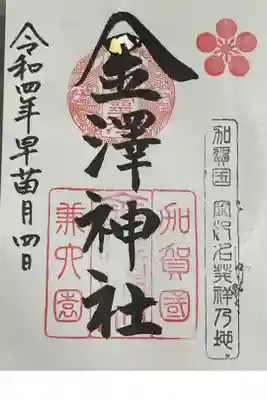 加賀国 金沢名発祥乃地
金澤神社
加賀國
兼六園
令和四年早苗月四日